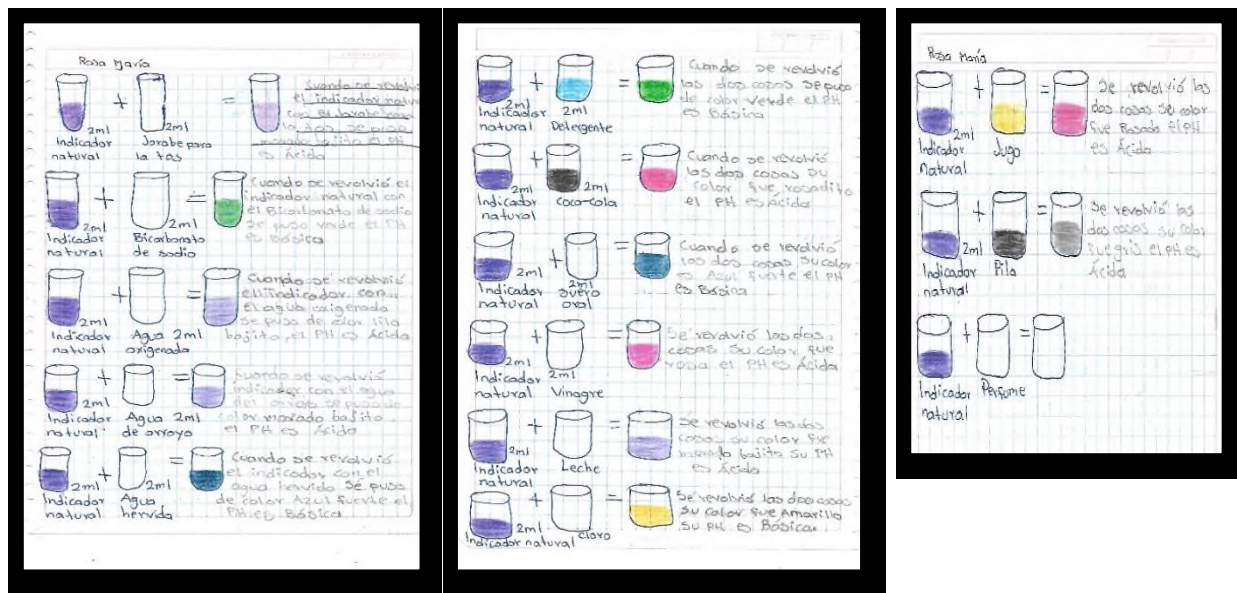 Rosa María
Cuando se revolvió
el indicador natural
con el jarabe para
la tos se puso
morado bajito el PH
es Ácida
2ml
2ml
Indicador
natural
Jarabe para
la tos
Cuando se revolvió el
indicador natural con
el Bicarbonato de sodio
se puso verde el PH
es Básica
2ml
2ml
Indicador
natural
Bicarbonato
de sodio
Cuando se revolvió
el indicador con
el agua oxigenada
se puso de color lila
bajito, el PH es Ácida
2ml
Indicador
natural
Agua 2ml
oxigenada
Cuando se revolvió
indicador con el agua
del arroyo se puso de
color morado bajito
el PH es Ácida
2ml
Indicador
natural
Agua 2ml
de arroyo
Cuando se revolvió
el indicador con el
agua hervida se puso
de color Azul fuerte el
PH es Básica
2ml
2ml
Indicador
natural
Agua
hervida
Cuando se revolvió
las dos cosas se puso
de color verde el PH
es Básica
2ml
2ml
Indicador
natural
Detergente
Cuando se revolvió
las dos cosas su
color fue rosadito
el PH es Ácida
2ml
2ml
Indicador
natural
coca-cola
Cuando se revolvió
las dos cosas su color
es Azul fuerte el PH
es Básica
2ml
2ml
Indicador
natural
suero
oral
Se revolvió las dos
cosas su color fue
rosa el PH es Ácida
2ml
Indicador
natural
Vinagre
Se revolvió las dos
cosas su color fue
morado bajito su PH
es Ácida
2ml
Indicador
natural
Leche
Se revolvió las dos cosas
su color fue Amarillo
su PH es Básica
2ml
Indicador natural
cloro
Rosa María
Se revolvió las
dos cosas se color
fue Rosado el PH
es Ácida
2ml
Indicador
Natural
Jugo
Se revolvió las
dos cosas su color
fue gris el PH es
Ácida
2ml
Indicador
natural
Pila
Indicador
natural
Perfume